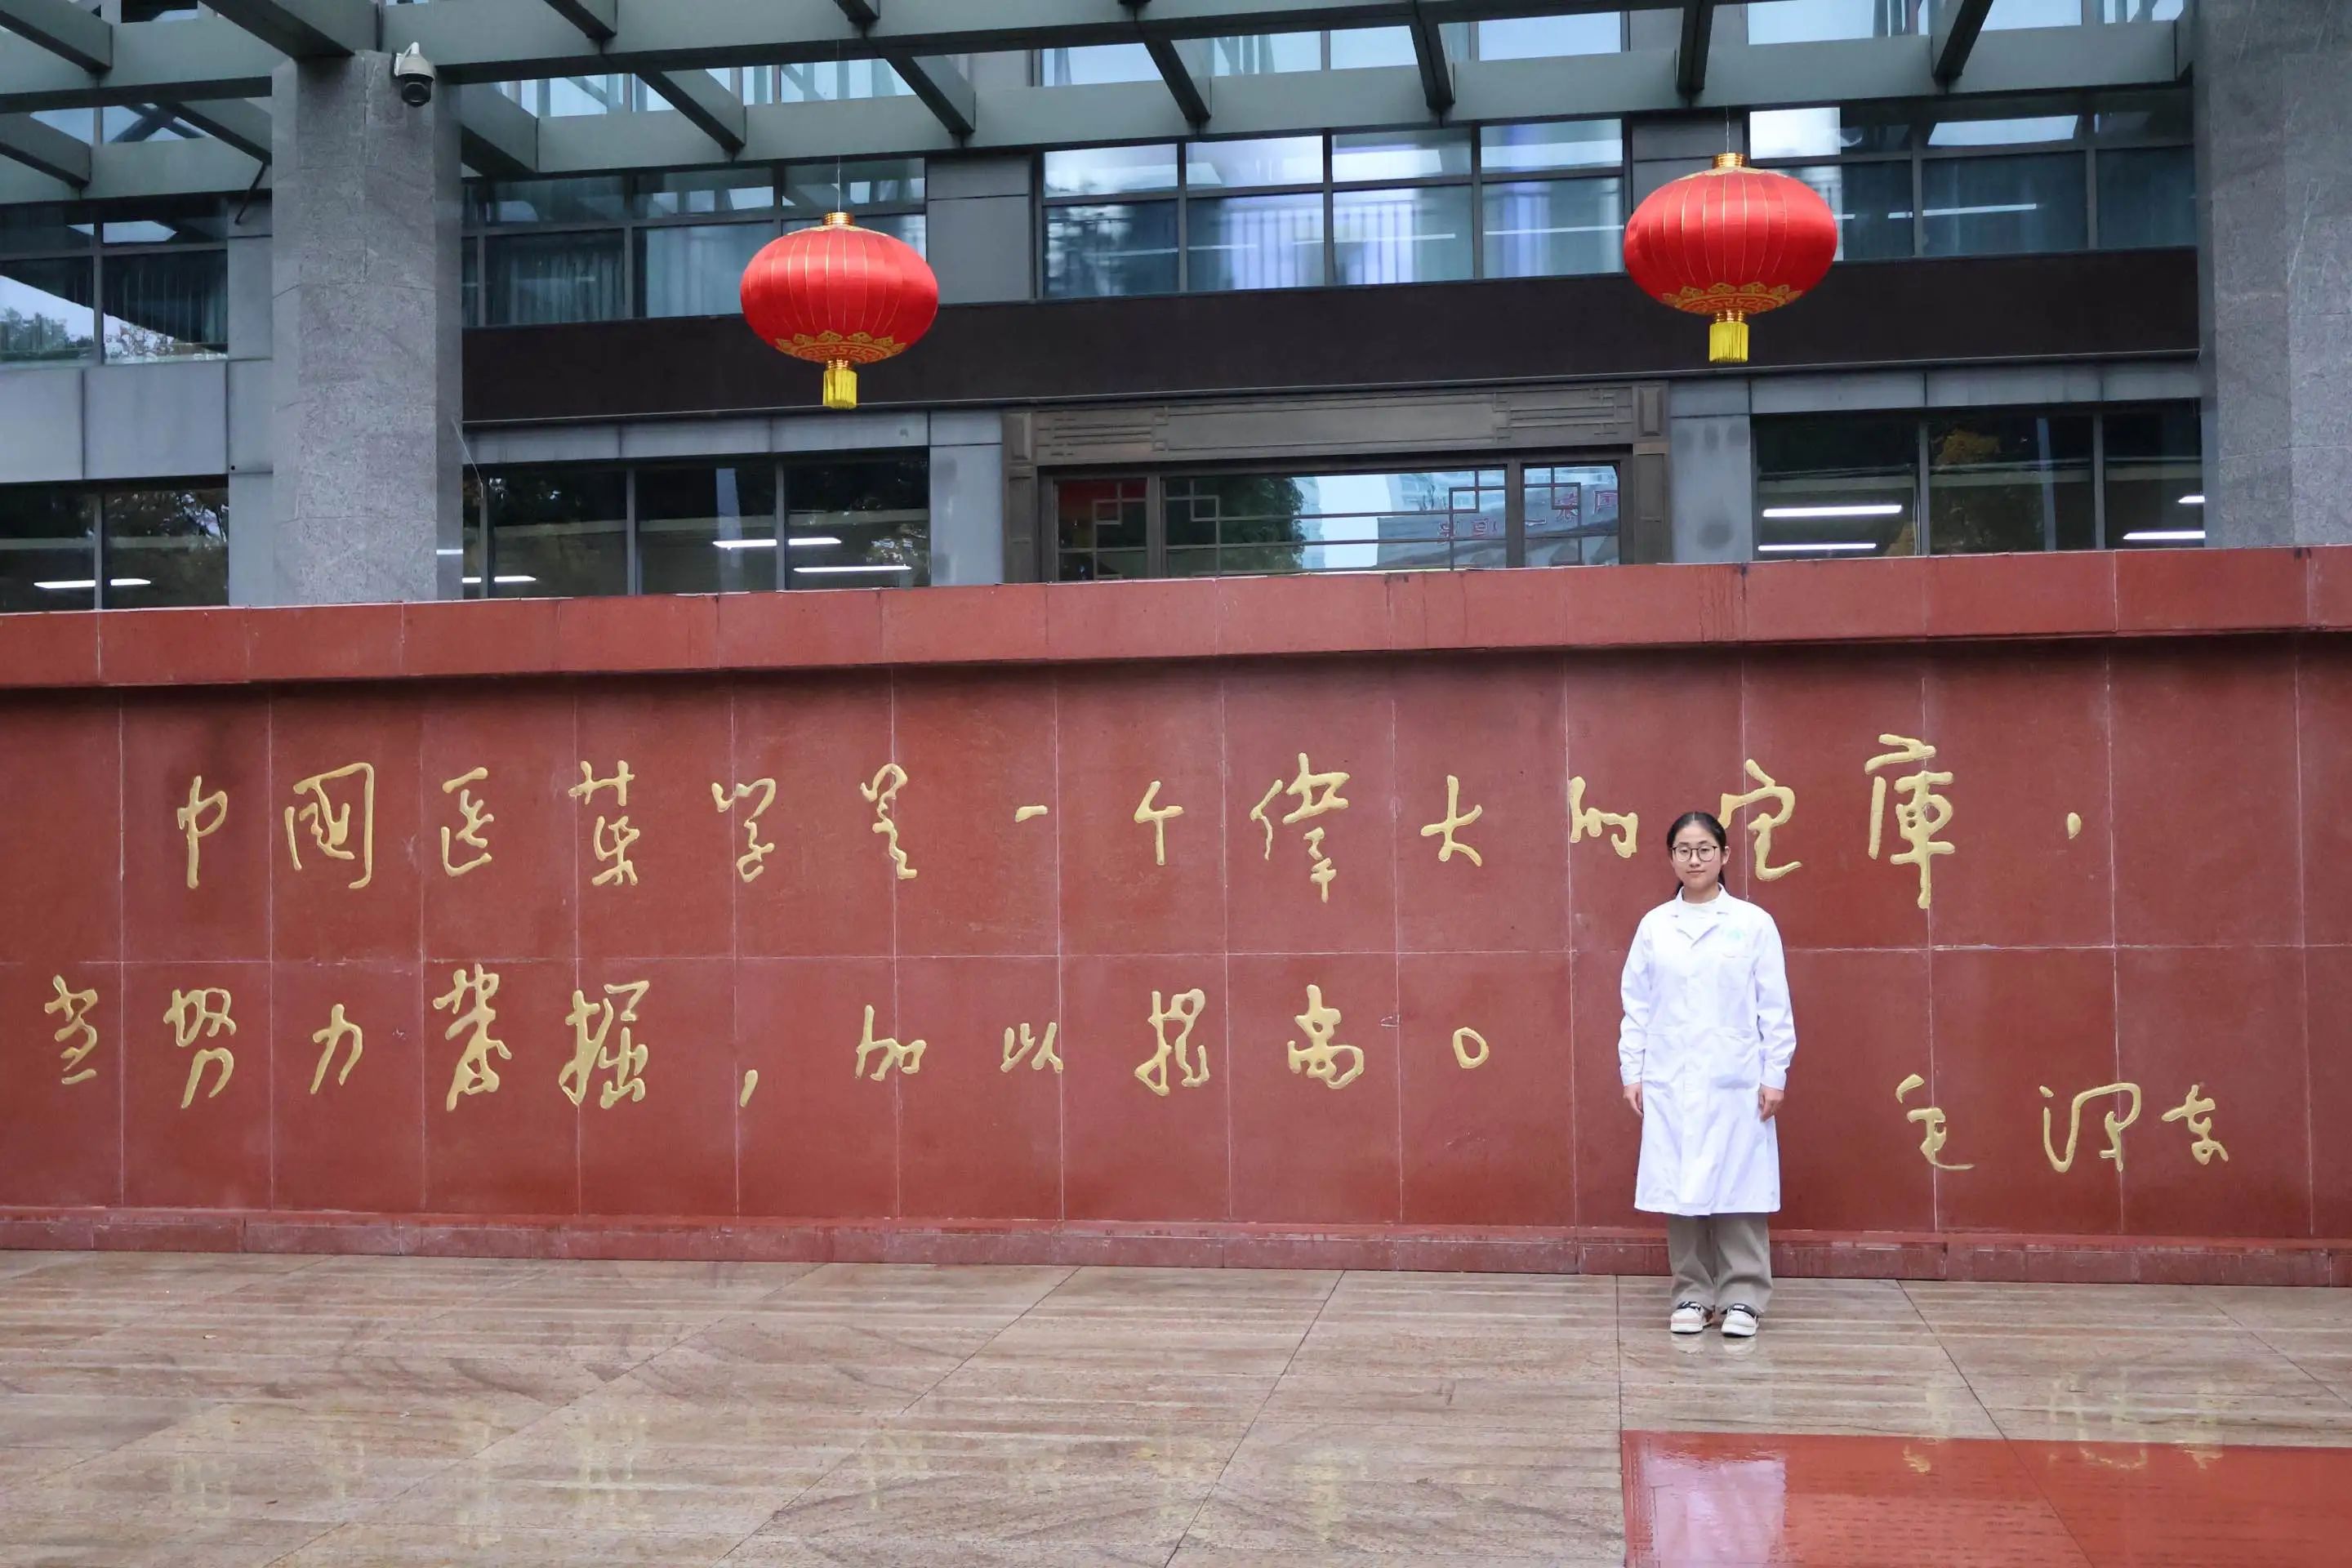 中國医药学是一个偉大的宝庫，
当努力发掘，加以提高。
毛泽东